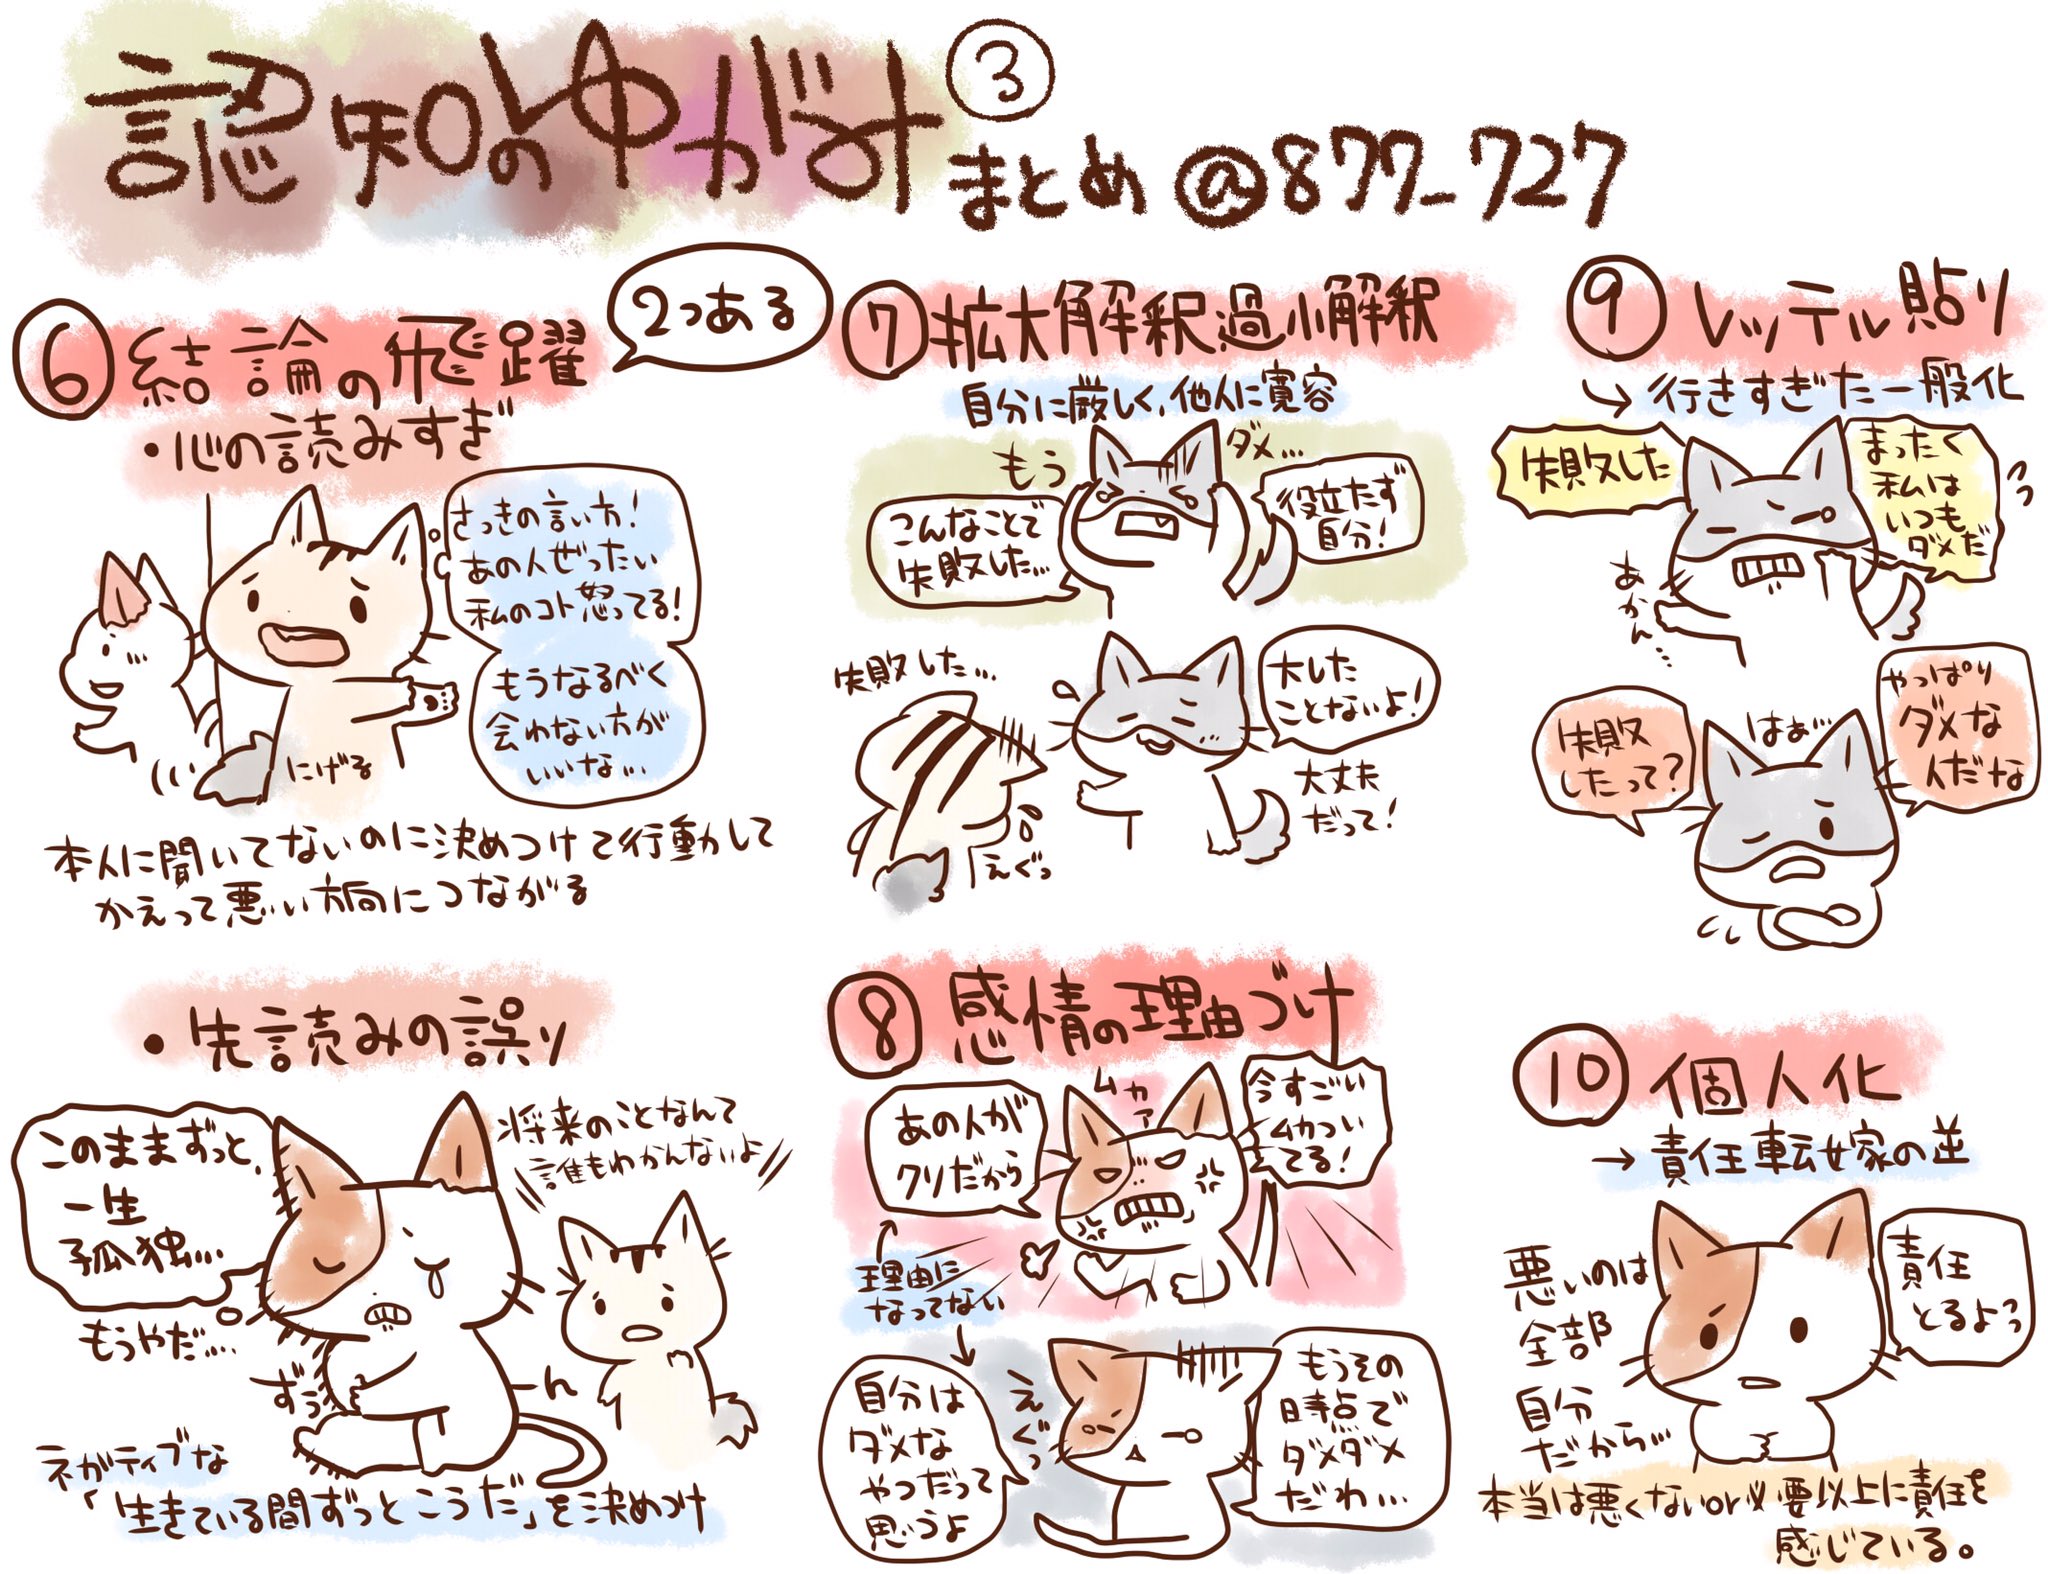 認知のゆがみ③
まとめ @877_727
⑥ 結論の飛躍
2つある
・心の読みすぎ
さっきの言い方!
あの人ぜったい
私のコト怒ってる!
もうなるべく
会わない方が
いいな…
にげる
本人に聞いてないのに決めつけて行動して
かえって悪い方向につながる
・先読みの誤り
このままずっと、
一生
孤独…
もうやだ…
ずぅ
ん
将来のことなんて
誰もわかんないよ
ネガティブな
「生きている間ずっとこうだ」を決めつけ
⑦ 拡大解釈過小解釈
自分に厳しく、他人に寛容
もう
ダメ…
こんなことで
失敗した…
役立たず
自分!
失敗した…
えぐっ
大した
ことないよ!
大丈夫
だって!
⑧ 感情の理由づけ
あの人が
クソだから
ムカァ
今すごい
ムカつい
てる!
理由に
なってない
自分は
ダメな
やつだって
思うよ
えぐっ
もうその
時点で
ダメダメ
だわ…
⑨ レッテル貼り
→ 行きすぎた一般化
失敗した
まったく
私は
いつも
ダメだ
あかん…
失敗
したって?
はぁ…
やっぱり
ダメな
人だな
⑩ 個人化
→ 責任転嫁の逆
悪いのは
全部
自分
だから…
責任
とるよっ
本当は悪くないor必要以上に責任を
感じている。